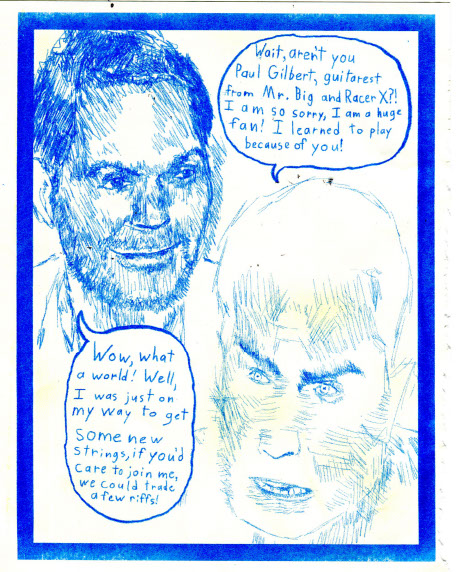 Wait, aren't you
Paul Gilbert, guitarest
from Mr. Big and Racer X?!
I am so sorry, I am a huge
fan! I learned to play
because of you!
Wow, what
a world! Well,
I was just on
my way to get
some new
strings, if you'd
care to join me,
we could trade
a few riffs!